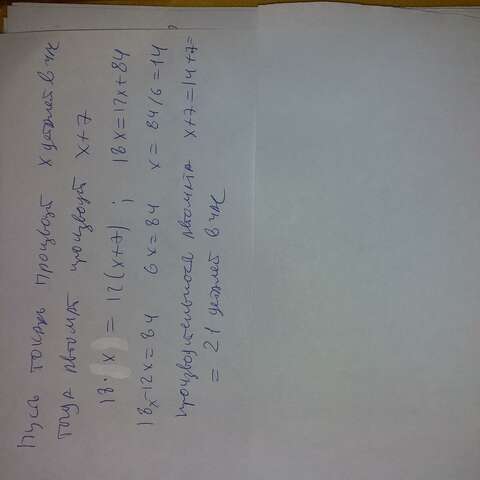 Пусь токарь произвоит x деталей в час
тогда автомат производит x+7
18·x = 12(x+7) ; 18x=12x+84
18x-12x=84 6x=84 x=84/6=14
производительность автомата x+7=14+7=
= 21 деталей в час